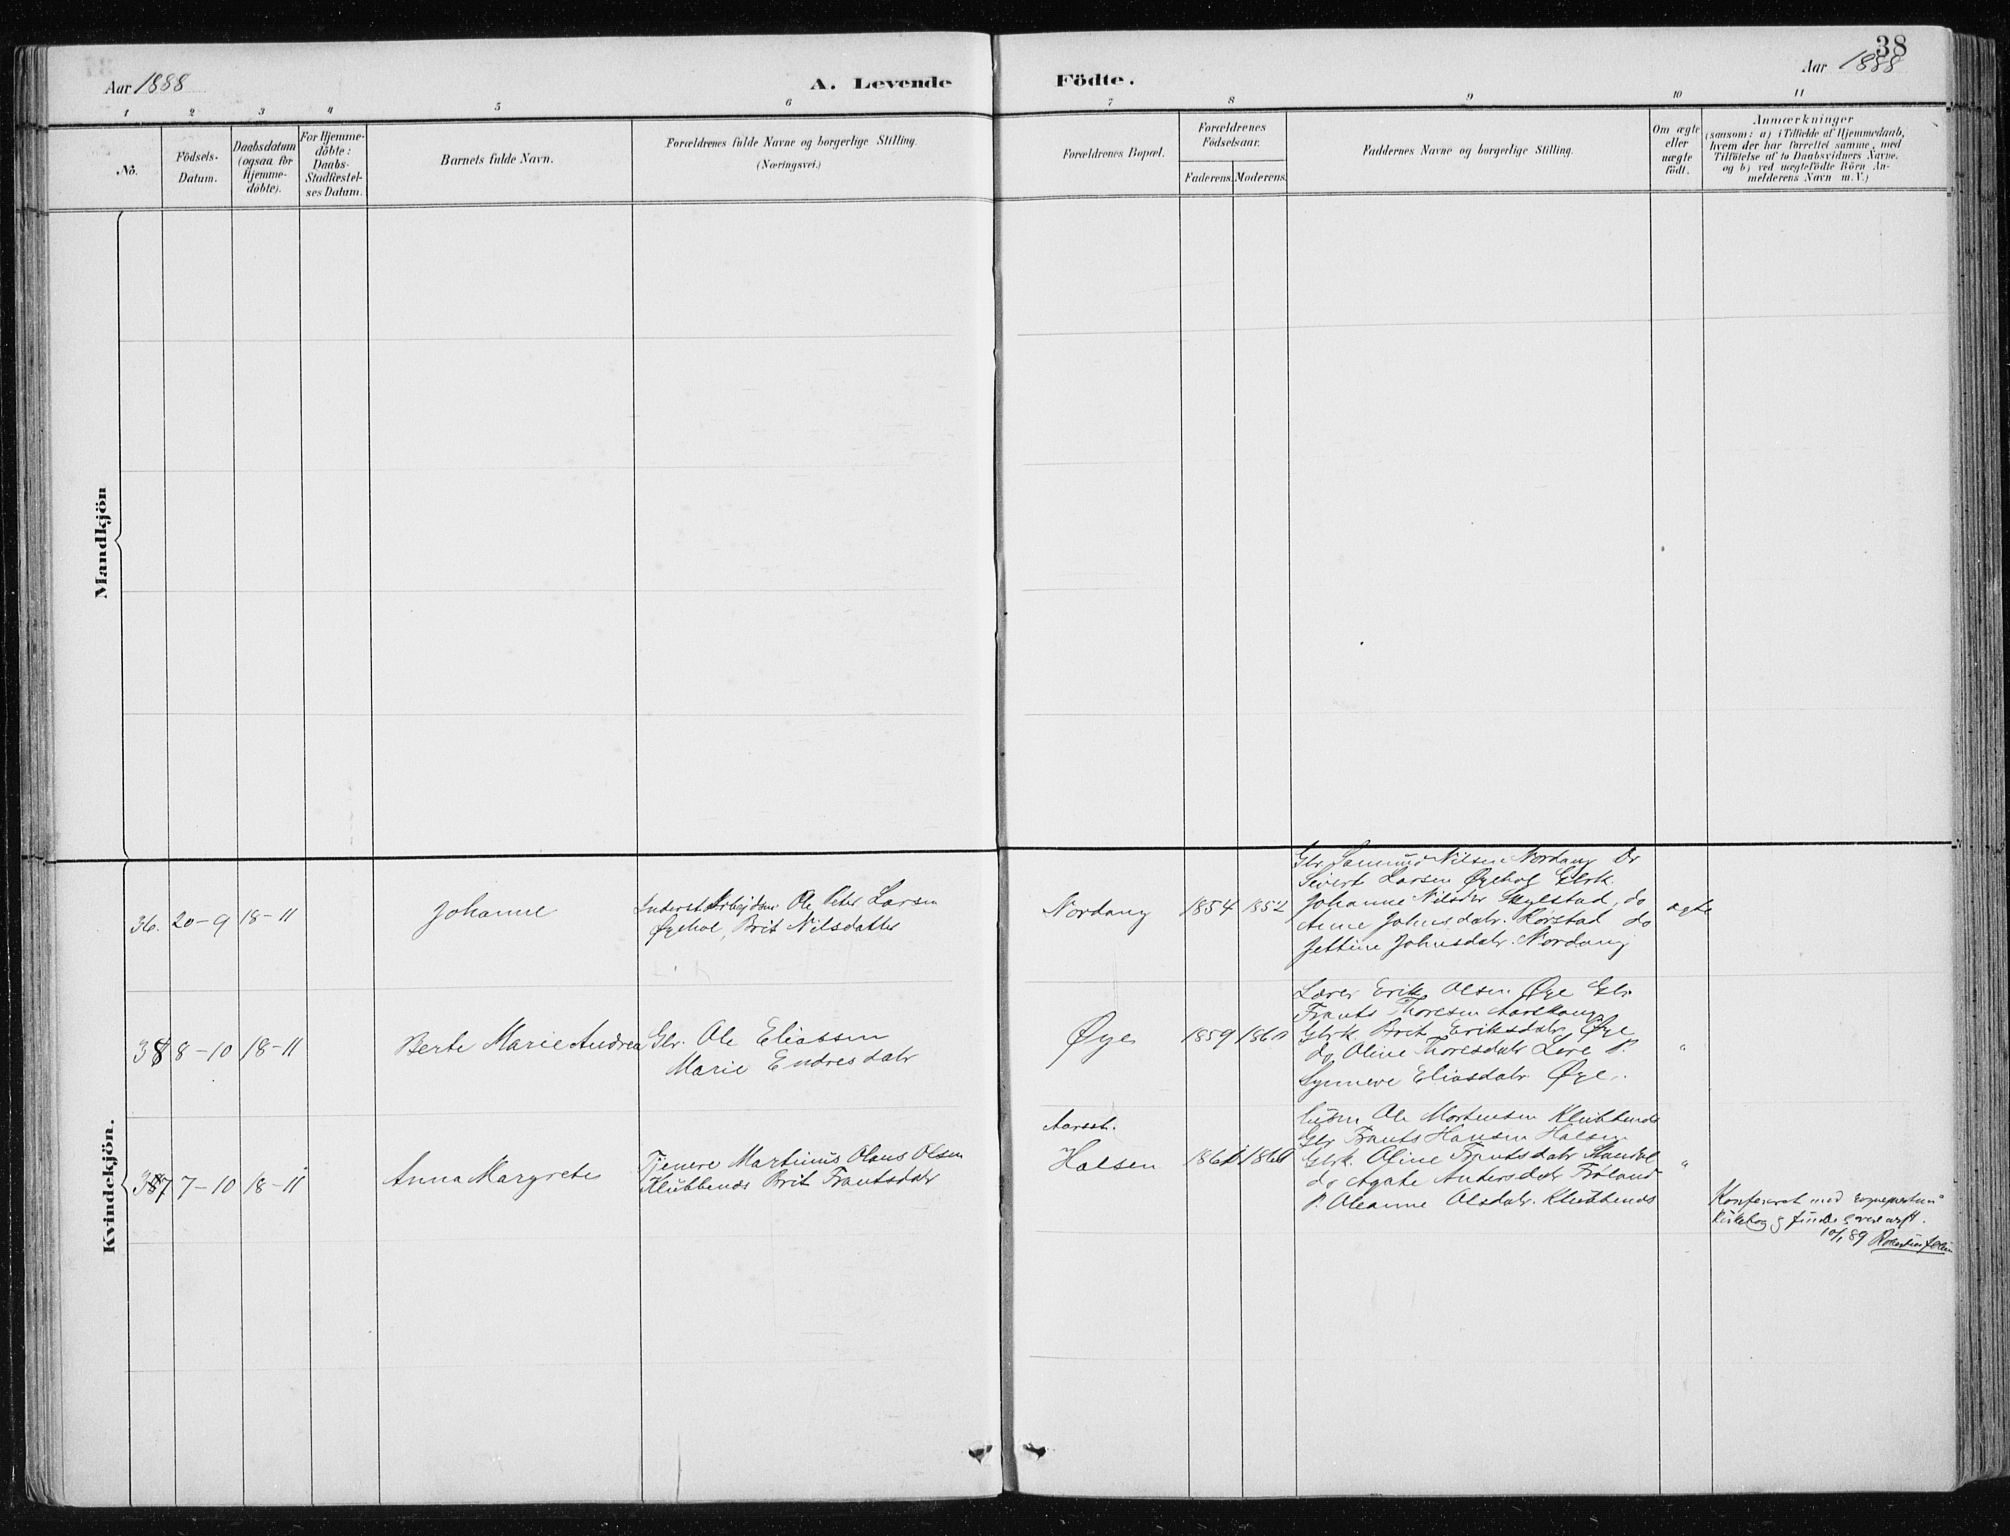 38
Aar 1888
A. Levende Födte.
Aar 1888
1 2 3 4 5 6 7 8 9 10 11
No.
Födsels-
Datum.
Daabsdatum
(ogsaa for
Hjemme-
döbte).
For Hjemme-
döbte:
Daabs-
Stadfæstel-
ses Datum.
Barnets fulde Navn.
Forældrenes fulde Navne og borgerlige Stilling.
(Næringsvei.)
Forældrenes Bopæl.
Forældrenes
Födselsaar.
Faderens. Moderens.
Faddernes Navne og borgerlige Stilling.
Om ægte
eller
uægte
födt.
Anmærkninger
(saasom: a) i Tilfælde af Hjemmedaab,
hvem der har forrettet samme, med
Tilföielse af to Daabsvidners Navne.
og b) ved uægtefödte Börn An-
melderens Navn m. V.)
Mandkjön
Kvindekjön.
36. 20-9 18-11 Johanne
Inderst Arbejdsm. Ole Peter Larsen
Øyehol, Brit Nilsdatter
Nordang 1854 1852
Gbr Samund Nilsen Nordang Do
Sivert Larsen Øyehol Gbrk.
Johanne Nilsdr Skylstad, do
Anne Johnsdatr. Korstad do
Jettine Johnsdatr. Nordang
ægte
38 8-10 18-11 Berte Marie Andrea
Gbr. Ole Eliassen
Marie Endresdatr
Øye 1859 1860
Lærer Erik Olsen Øye Gbr.
Frants Thoresen Aarskoug
Gbrk Brit Eriksdatr Øye
do Oline Thoresdatr Leve P.
Synneve Eliasdatr Øye.
"
37 7-10 18-11 Anna Margrete
Tjenere Martinus Olaus Olsen
Klubbenes Brit Frantsdatr
Aarset.
Halsen 1861 1860
Ole Mortensen Klubbenes
Gbr Frants Hansen Halsen
Gbrk. Oline Frantsdatr Standal
do Agate Andersdatr Frøland
P. Oleanne Olsdatr. Klubbenes
"
Konfereret med Sognepræstens
Kirkebog &
10/1 89